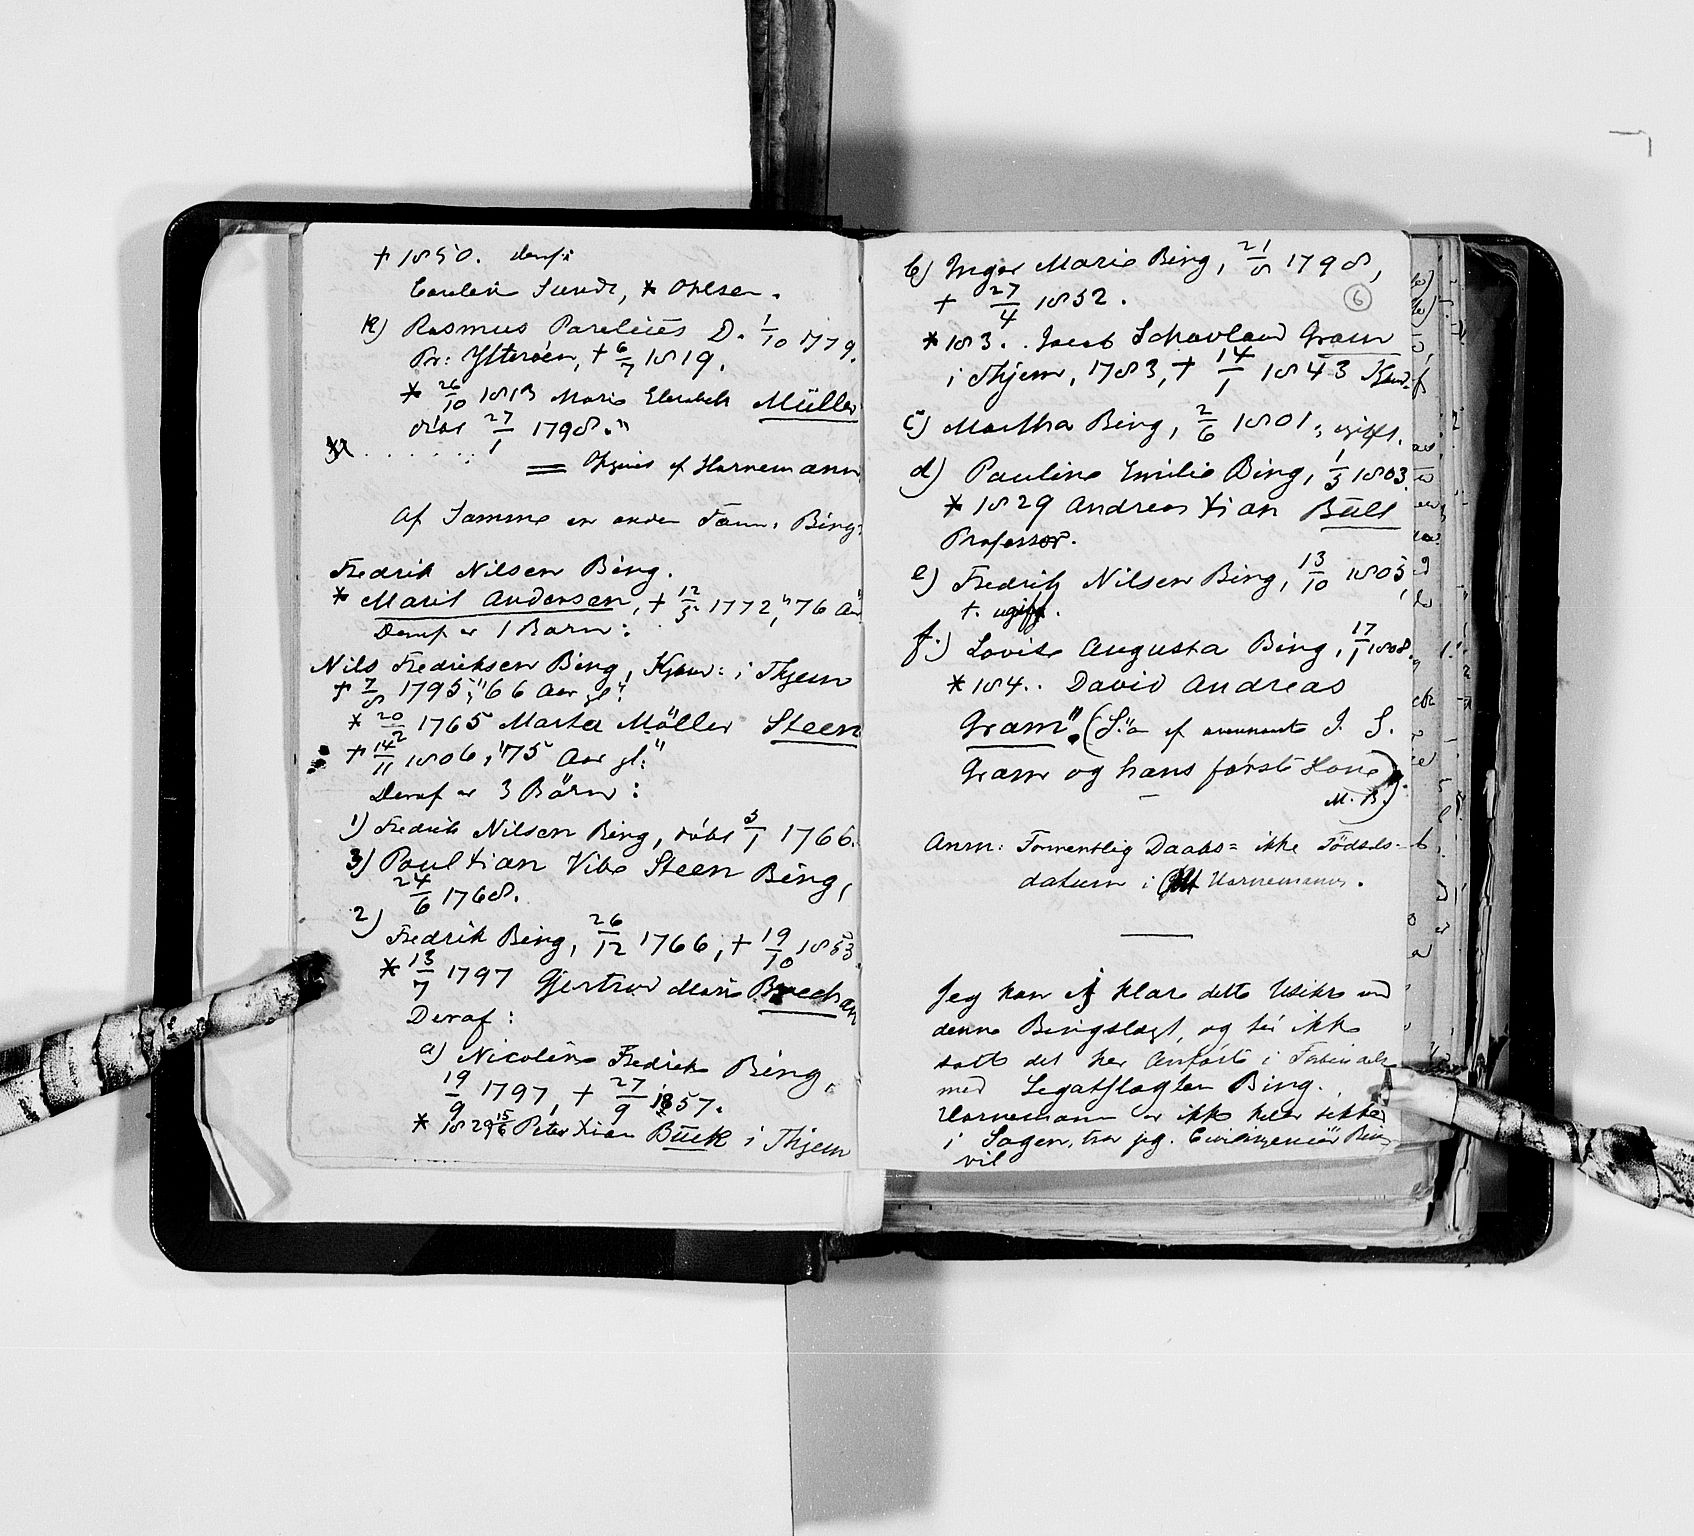 † 1850. Deraf:
Sundt, * Ohlsen.
k) Rasmus Parelius D. 1/10 1779.
Pr: Ytterøen, † 6/7 1819.
* 26/10 1813 Marie Elisabeth Müller
döbt 27/1 1798."
af Hornemann
Af Samme en anden Fam: Bing:
Fredrik Nilsen Bing.
* Marit Andersen, † 12/5 1772, "76 Aar
Deraf er 1 Barn:
Nils Fredriksen Bing, Kjøbm: i Thjem
† 7/8 1795, "66 Aar gl."
* 20/2 1765 Marta Möller Steen
† 14/11 1806, "75 Aar gl:"
Deraf er 3 Börn:
1) Fredrik Nilsen Bing, döbt 5/1 1766.
3) Poul Xian Vibe Steen Bing,
24/6 1768.
2) Fredrik Bing, 26/12 1766, † 19/10 1853.
* 13/7 1797 Gjertrud Marie
Deraf:
a) Nicoline Fredrikke Bing,
19/9 1797, † 27/9 1857.
* 1829 15/6 Peter Xian Buck i Thjem
b) Inger Marie Bing, 21/8 1798,
† 27/4 1852.
6
* 183.. Jacob Schavland Gram
i Thjem, 1783, † 14/1 1843
c) Martha Bing, 2/6 1801, ugift.
d) Pauline Emilie Bing, 1/3 1803.
* 1829 Andreas Xian Bull
Professor.
e) Fredrik Nilsen Bing, 13/10 1805,
†. ugift.
f.) Lovise Augusta Bing, 17/1 1808.
* 184.. David Andreas
Gram". (S:ön af ovennævnte J. S.
Gram og hans første Kone
M. B.)
Anm: Formentlig Daabs= ikke Födsels-
datum i Hornemann.
Jeg kan ej klare dette Usikre ved
denne Bingslægt, og tör ikke
satte det her Anförte i Forbindelse
med Legatslægten Bing.
Hornemann er ikke heller sikker
i Sagen, tror jeg. Civilingeniör Bing
vil